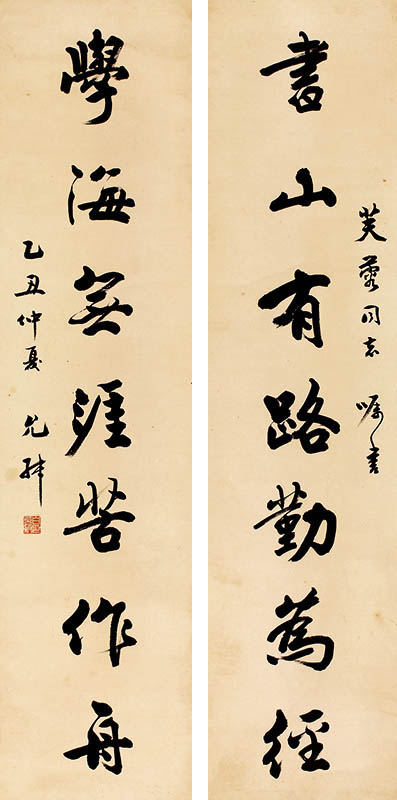 芙蓉同志 嘱書
書山有路勤為徑
學海無涯苦作舟
乙丑仲夏 允叔